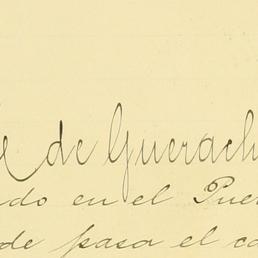 de Guerach
do en el Puer
de pasa el ca